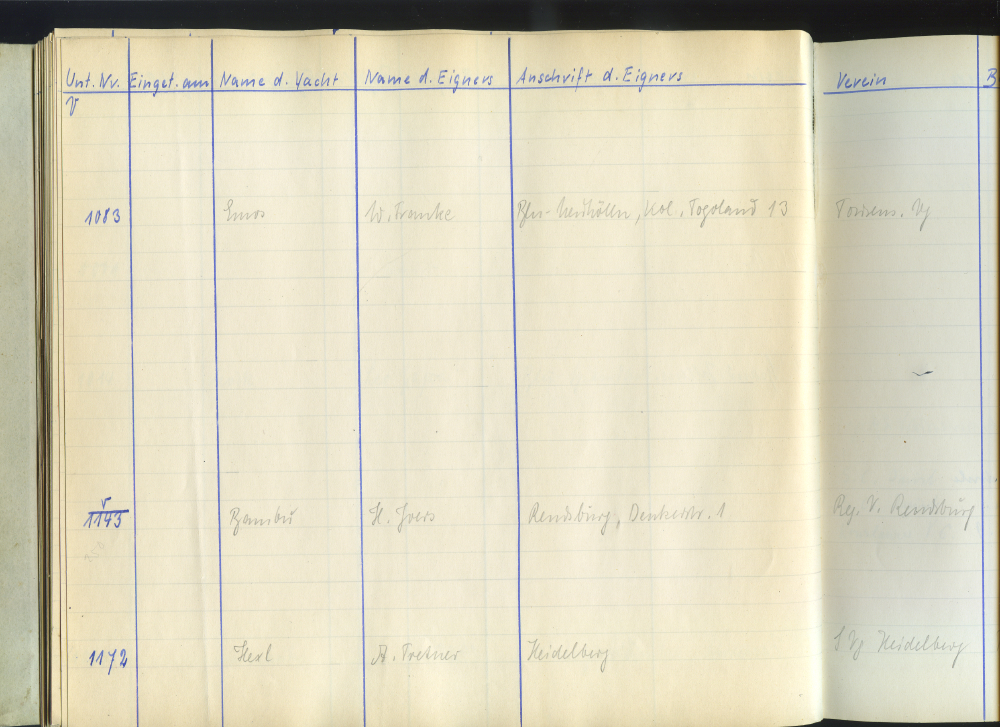 Unt. Nr. Einget. am Name d. Yacht Name d. Eigners Anschrift d. Eigners Verein B
V
1083 W. Franke Bln-Neukölln, Kol. Togoland 13
V
1143 Bambü Rendsbürg, Denkerstr. 1 Reg. V. Rendsbürg
1172 Heidelberg S Vg Heidelberg